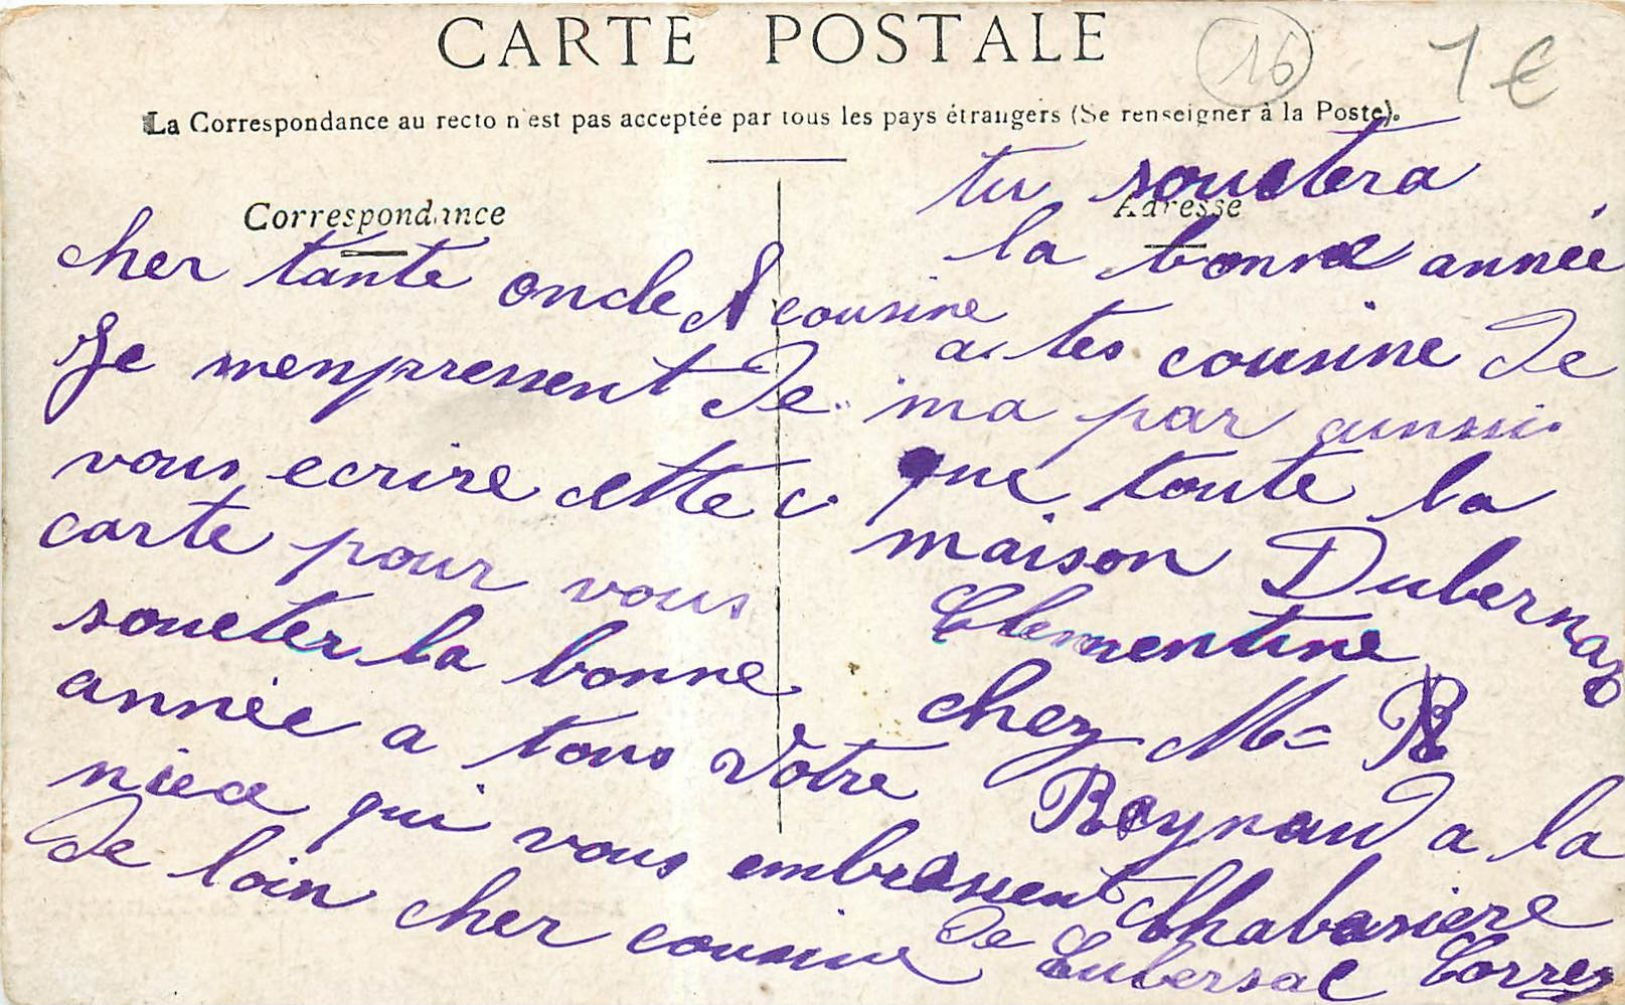 CARTE POSTALE
16
1€
La Correspondance au recto n'est pas acceptée par tous les pays étrangers (Se renseigner à la Poste).
Correspondance
Adresse
cher tante oncle et cousine
Je menpressent de
vous ecrire cette c
carte pour vous
soueter la bonne
année a tous votre
niece qui vous embrassent
de loin cher cousine
tu souetera
la bonne année
a tes cousine de
ma par aunssi
que toute la
maison Dubernard
Clementine
chez Mr R
Reynaud a la
Chabasiere
de Lubersac Correz